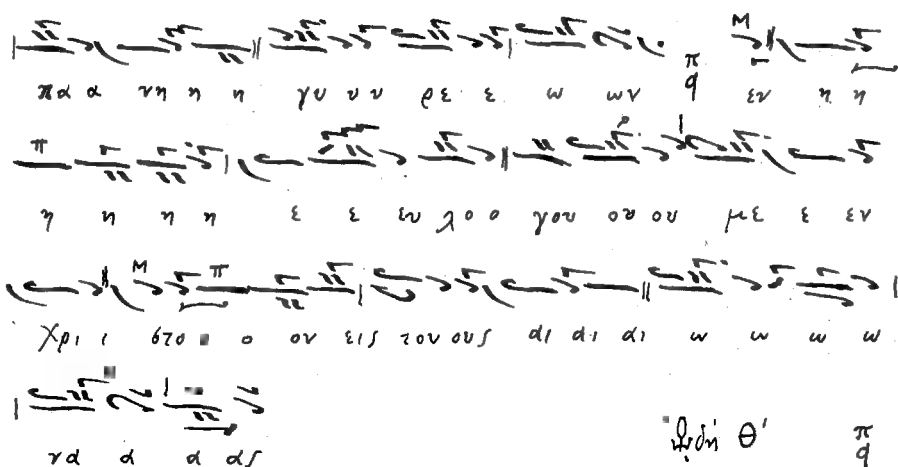 πα α νη η η γυ υ υ ρε ε ω ων π q εν η η
η η η η ε ε ευ λο ο γου ου ου με ε εν
Χρι ι στο ο ο ον εις του ους αι αι αι ω ω ω ω
να α α ας Ὠδή θ' π q